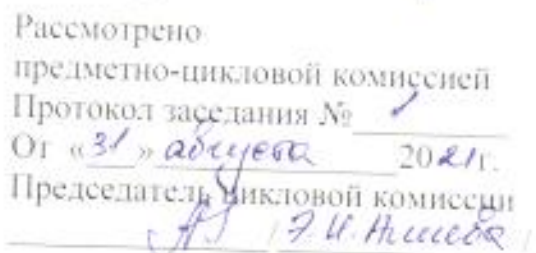 Рассмотрено
предметно-цикловой комиссией
Протокол заседания № 1
От «31» августа 2021г.
Председатель цикловой комиссии
Э.И.